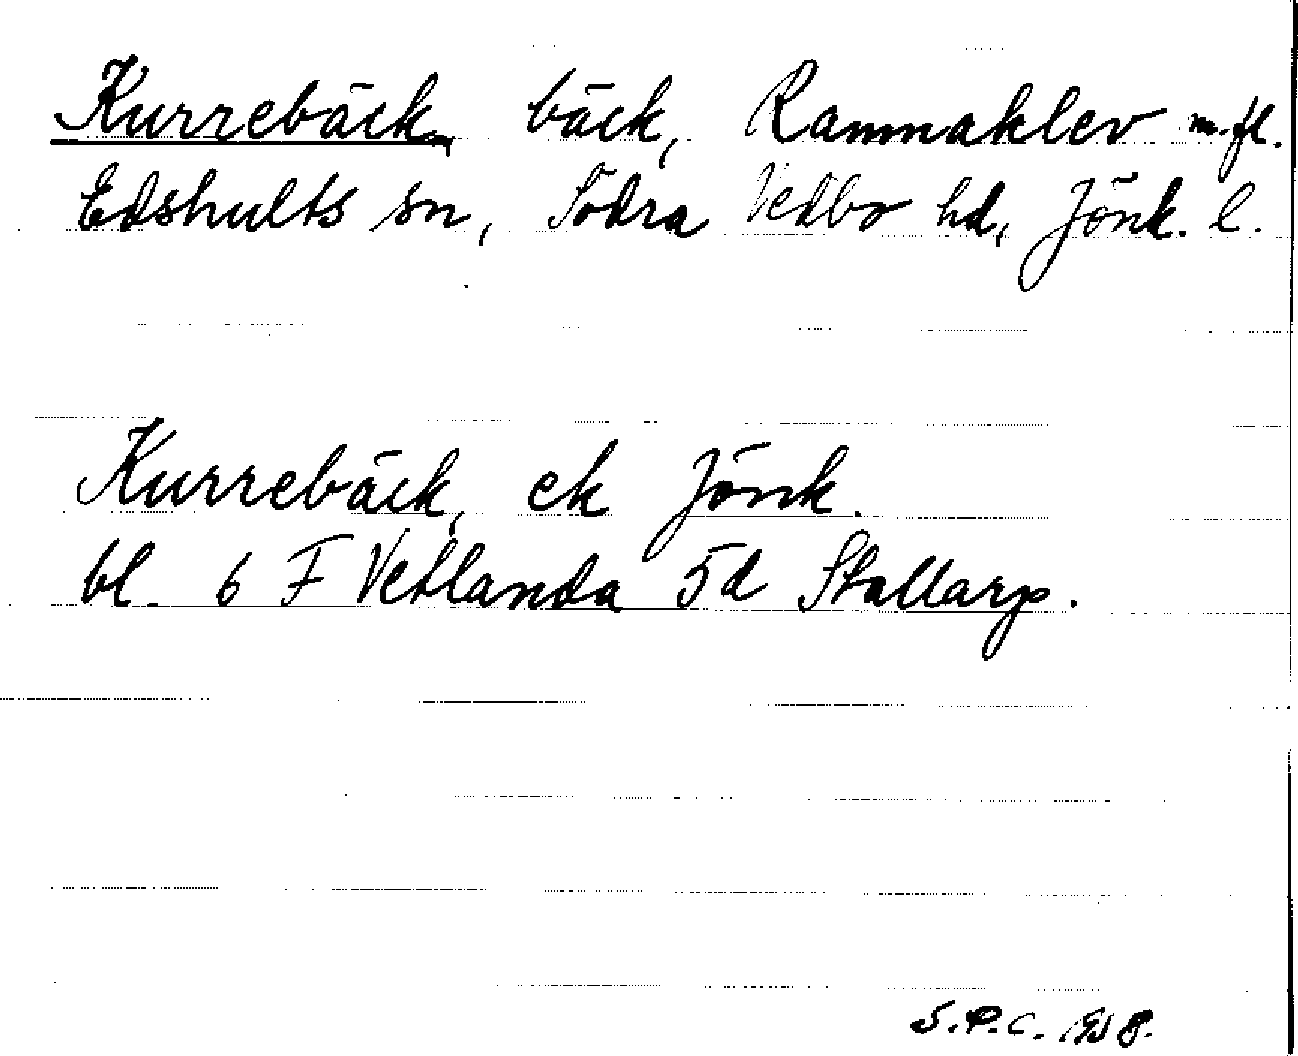 Kurrebäck, bäck, Rammaklev m.fl.
Edshults sn, Södra Vedbo hd, Jönk. l.
Kurrebäck, ek Jönk.
bl. 6 F Vetlanda 5d Stallarp.
S.P.C.